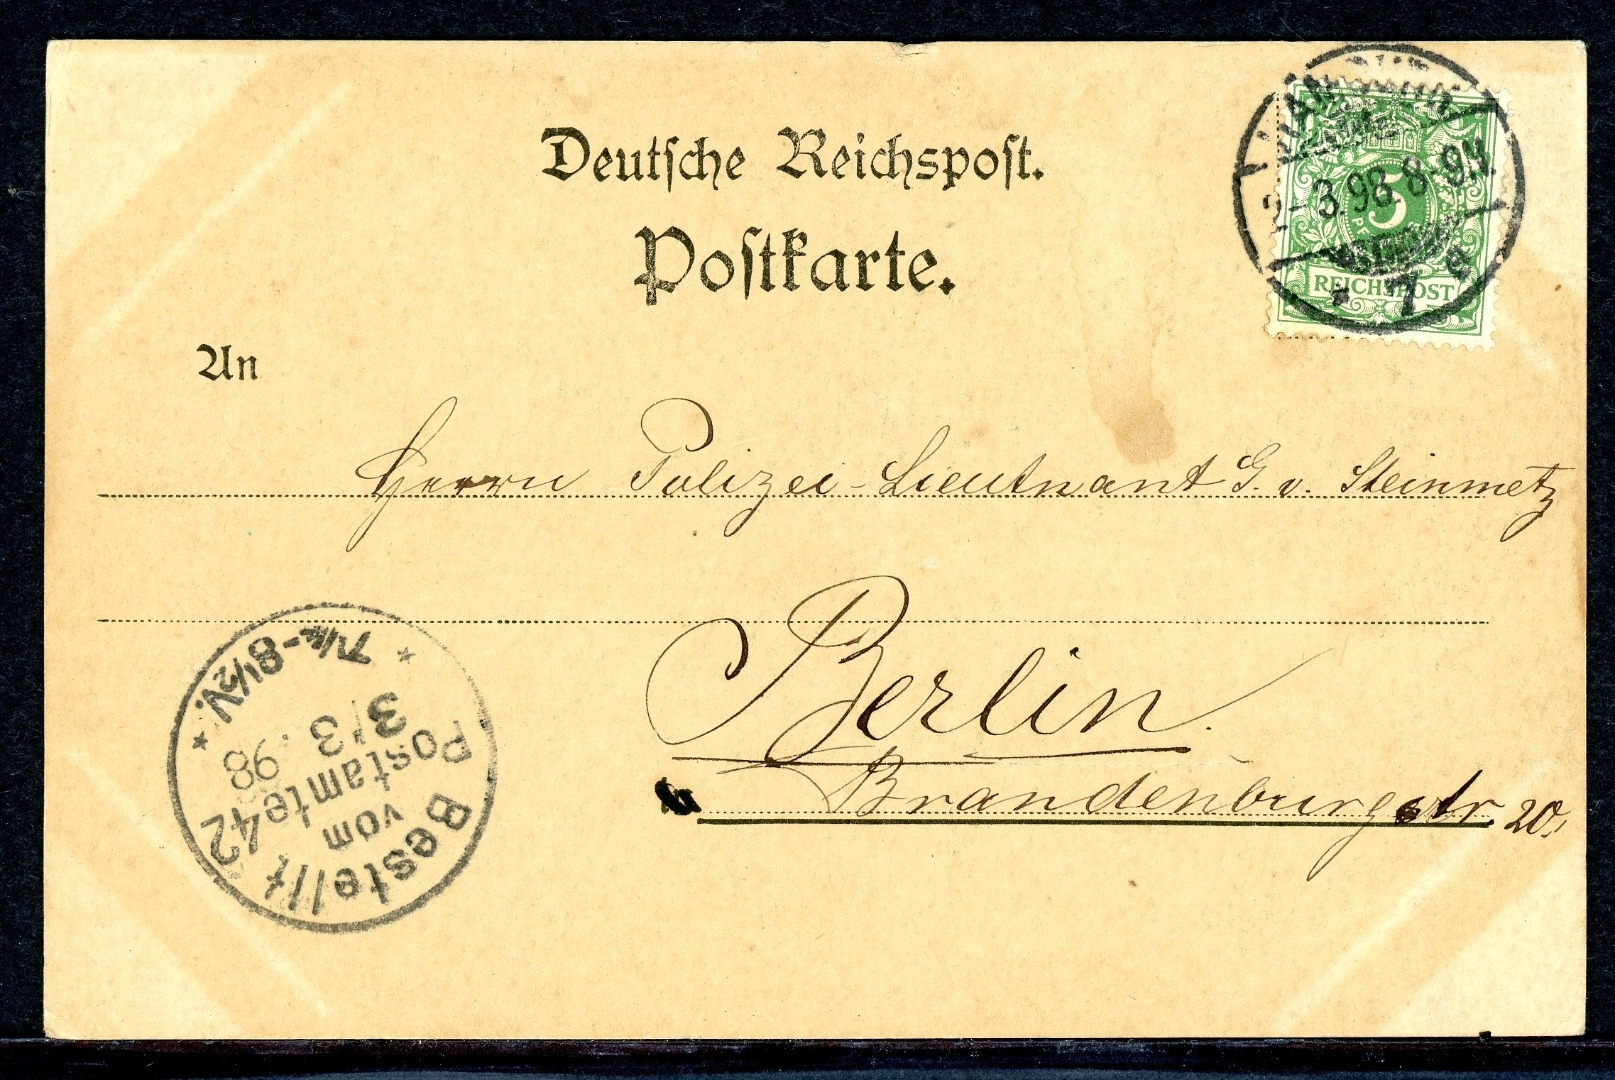 Deutsche Reichspost.
Postkarte.
An
Herrn Polizei-Lieutnant G. v. Steinmetz
Berlin.
Brandenburgstr. 20,
HAMBURG
2-3.98. 8-9N
* 7 d
5
REICHSPOST
Bestellt
vom
Postamte 42
3/3
98
* 7¼-8½V. *